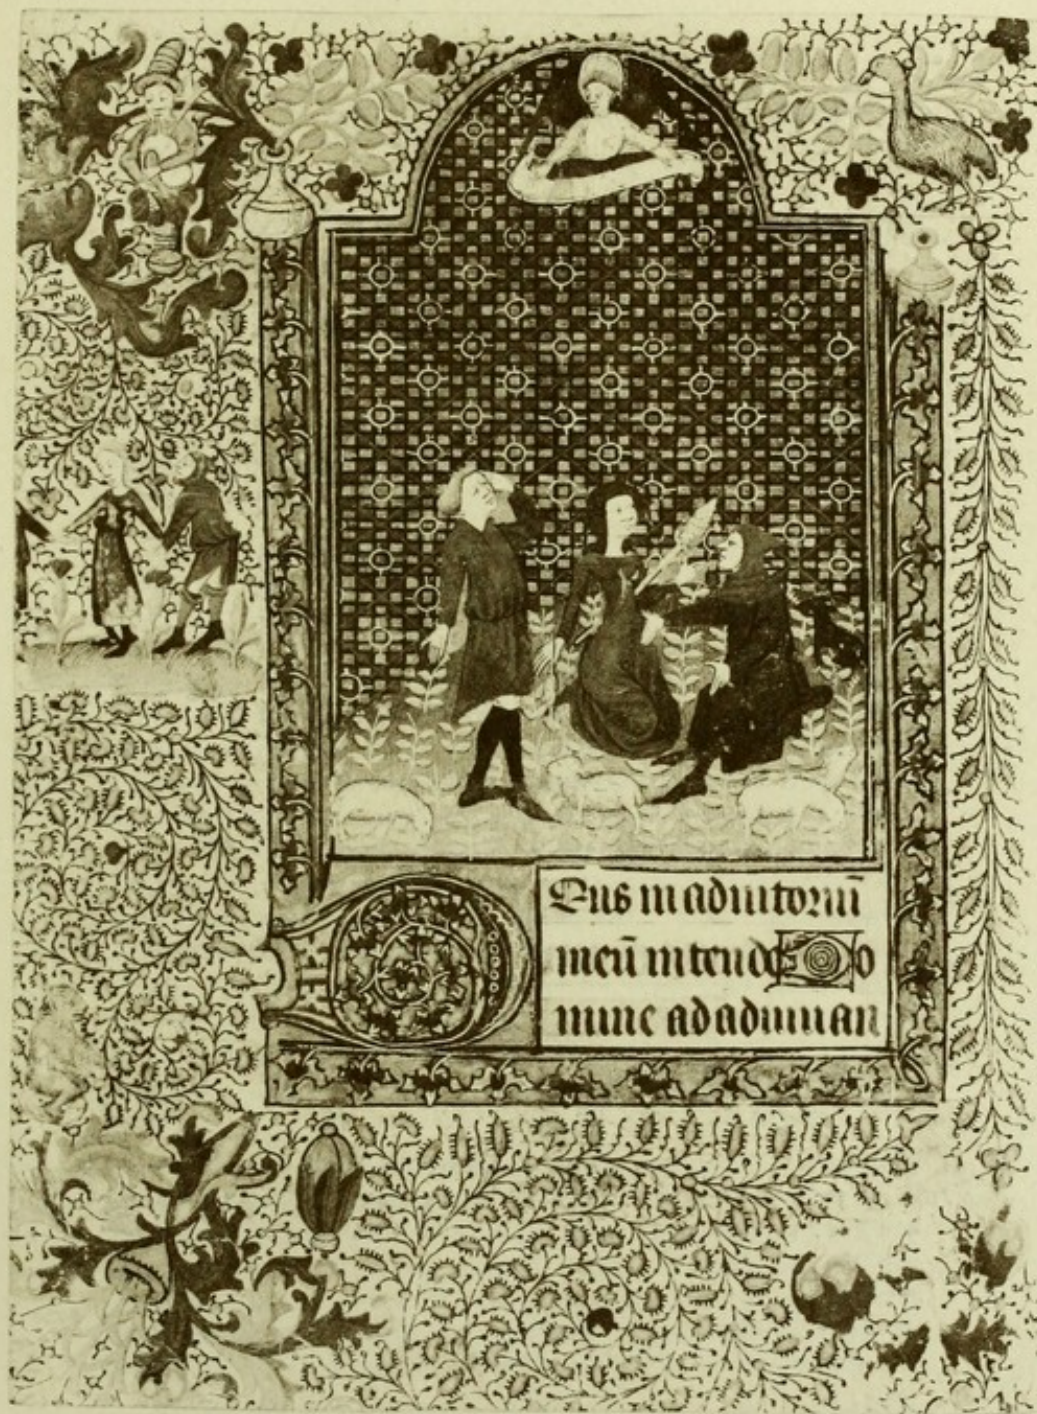 Deus in adiutoriū
meū intende Do
mine ad adiuuan